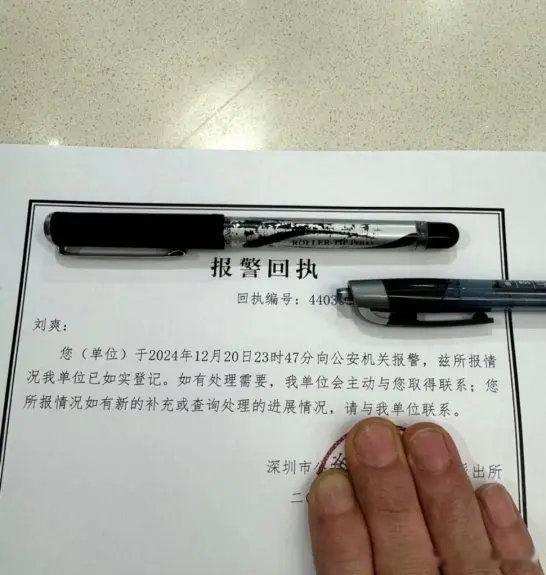 ROLLER-TIP Pen
报警回执
回执编号：4403
刘爽：
您（单位）于2024年12月20日23时47分向公安机关报警，兹所报情
况我单位已如实登记。如有处理需要，我单位会主动与您取得联系；您
所报情况如有新的补充或查询处理的进展情况，请与我单位联系。
深圳市公 派出所
二